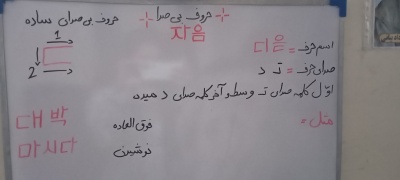 حروف بی صدا
حروف بی صدای ساده
자음
1
2
اسم حرف = 디귿
صدای حرف = ت د
اول کلمه صدای ت وسط و آخر کلمه صدای د میده
مثل =
대박 فوق العاده
마시다 نوشیدن